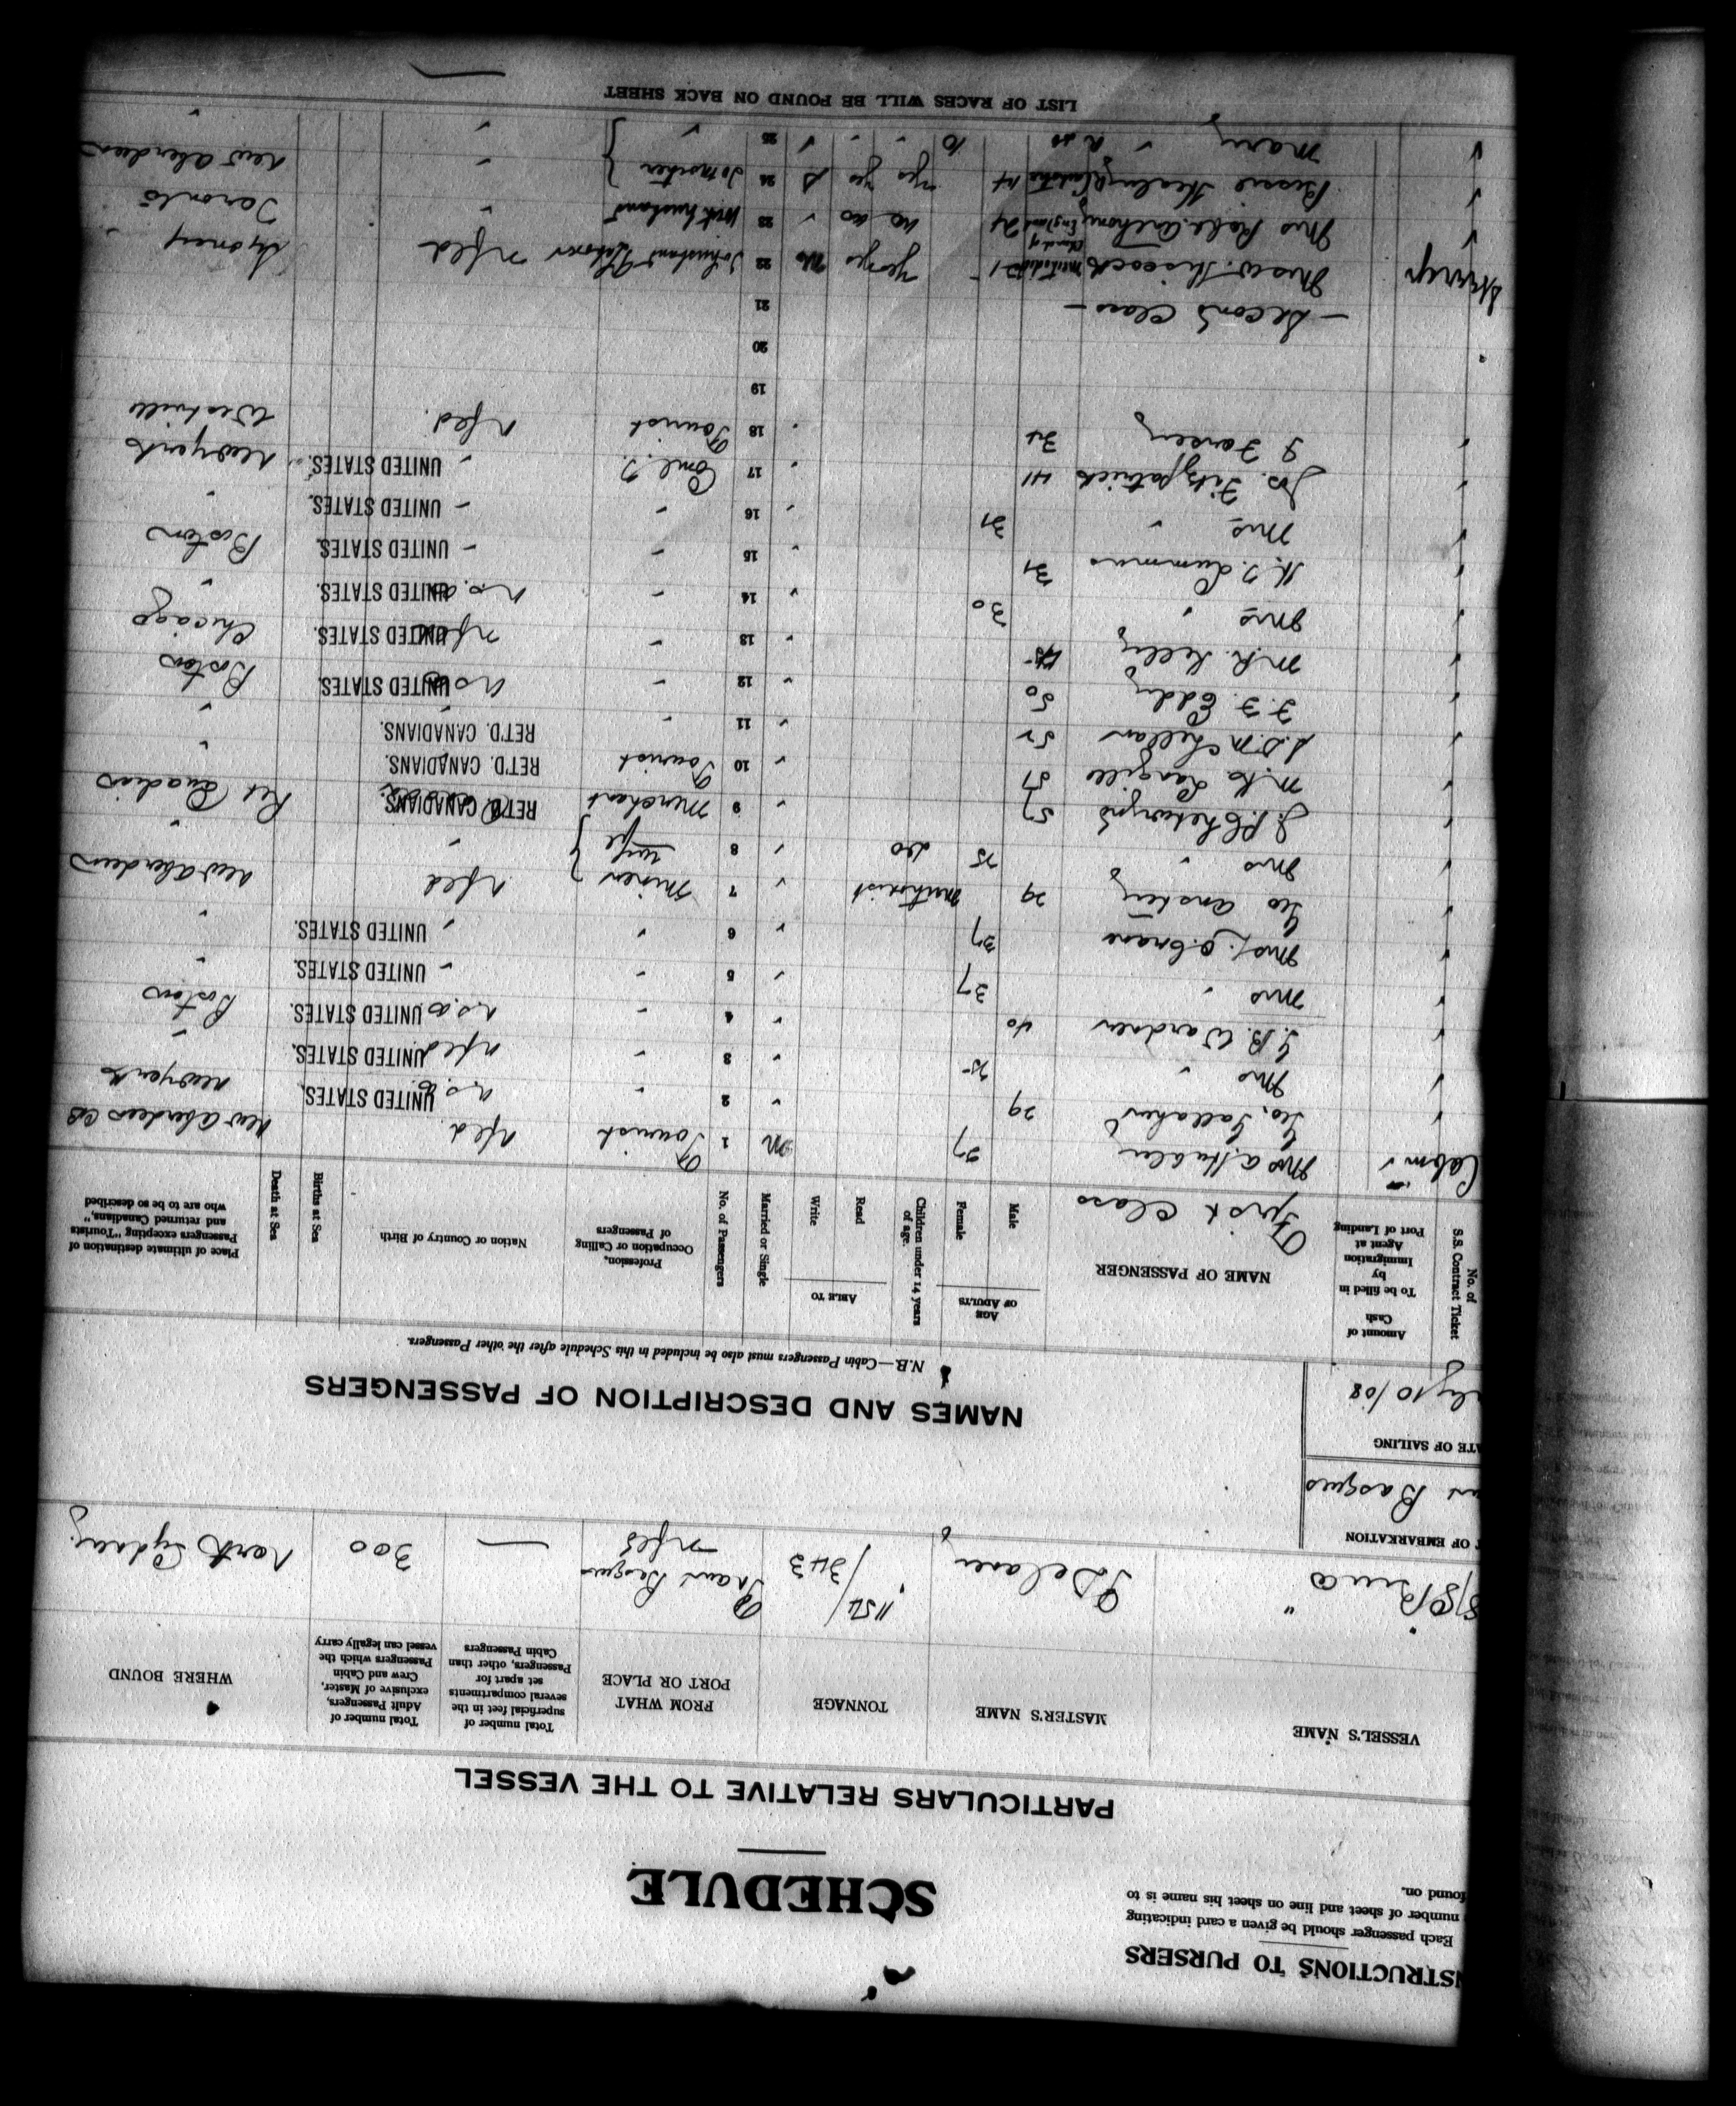 INSTRUCTIONS TO PURSERS
Each passenger should be given a card indicating
number of sheet and line on sheet his name is to
found on.
SCHEDULE
PARTICULARS RELATIVE TO THE VESSEL
VESSEL'S NAME
MASTER'S NAME
TONNAGE
FROM WHAT
PORT OR PLACE
Total number of
superficial feet in the
several compartments
set apart for
Passengers, other than
Cabin Passengers
Total number of
Adult Passengers,
exclusive of Master,
Crew and Cabin
Passengers which the
vessel can legally carry
WHERE BOUND
S/S Bruce " Delaney 1154/343 Port aux Basques Nfld — 300 North Sydney
OF EMBARKATION
Basques
DATE OF SAILING
10/08
NAMES AND DESCRIPTION OF PASSENGERS
N.B.—Cabin Passengers must also be included in this Schedule after the other Passengers.
No. of
S.S. Contract Ticket
Amount of
Cash
To be filled in
by
Immigration
Agent at
Port of Landing
NAME OF PASSENGER
AGE
OF ADULTS
Male
Female
Children under 14 years
of age.
ABLE TO
Read
Write
Married or Single
No. of Passengers
Profession,
Occupation or Calling
of Passengers
Nation or Country of Birth
Births at Sea
Death at Sea
Place of ultimate destination of
Passengers excepting "Tourists
and returned Canadians,"
who are to be so described
First Class
Cabin Mrs A. 27 M 1 Tourist Nfld New Aberdeen CB
Geo. Gallahue 29 " 2 " UNITED STATES. New York
Mrs " 25 " 3 " Nfld UNITED STATES. "
G. B. Wardner 40 " 4 " UNITED STATES. Boston
Mrs " 37 " 5 " " UNITED STATES. "
Mrs 37 " 6 " " UNITED STATES. "
Geo Anstey 29 Methodist " 7 Miner Nfld New Aberdeen
Mrs " 25 do " 8 wife " "
Chetwynd 57 " 9 Merchant RET'D. CANADIANS. Ret Canadian
Langille 51 " 10 Tourist RET'D. CANADIANS. "
52 " 11 " RET'D. CANADIANS. "
F. F. Eddy 50 " 12 " UNITED STATES. Boston
M. R. Kelly 45 " 13 " UNITED STATES. Chicago
Mrs " 30 " 14 " UNITED STATES. "
H. J. Lummus 31 " 15 " " UNITED STATES. Boston
Mrs " 31 " 16 " " UNITED STATES. "
Jos. Fitzpatrick 41 " 17 " UNITED STATES. New York
34 18 Tourist Nfld. Westville
19
20
21 — Second Class —
Mrs W. Hiscock Methodist 21 yes yes 22 To husband Nfld Sydney
Mrs Robt. Anthony Church of England 24 no no " 23 With husband " Toronto
Bessie 14 yes yes S 24 To mother " New Aberdeen
Mary " 10 " " " 25 " " "
LIST OF RACES WILL BE FOUND ON BACK SHEET